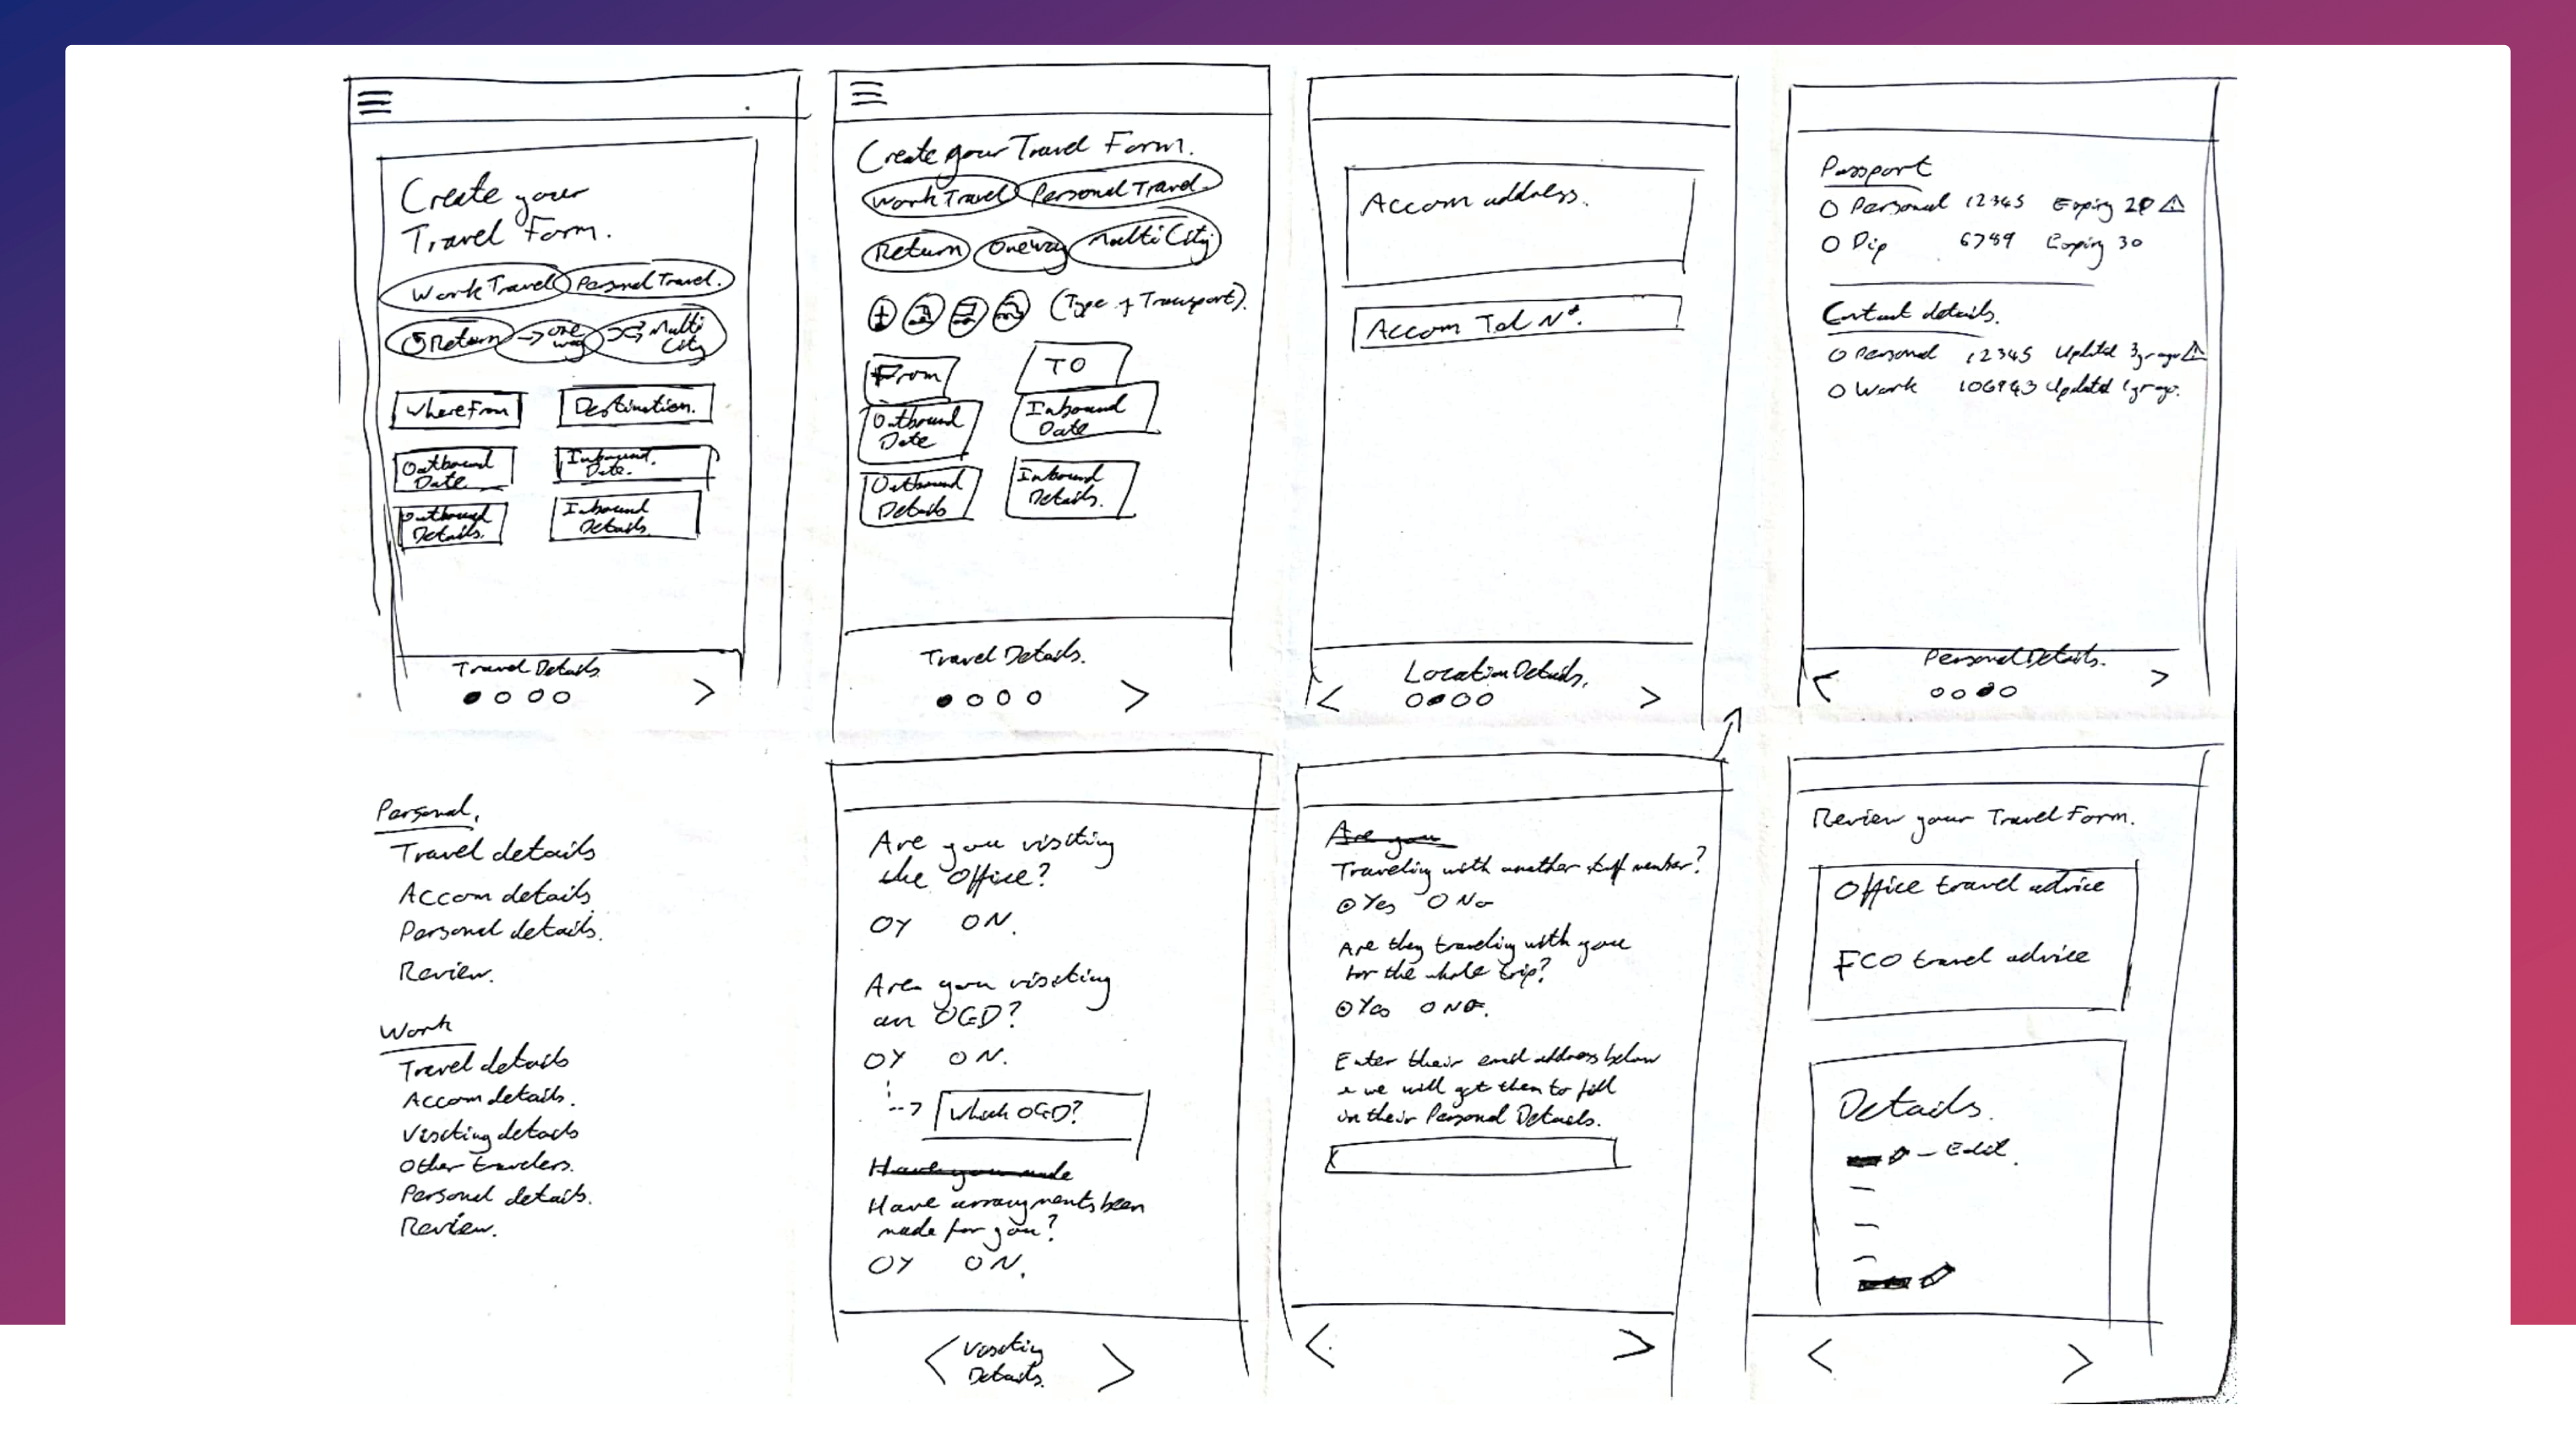 Create your
Travel Form.
Work Travel Personal Travel.
Return → one way Multi City
Where From Destination.
Outbound Date Inbound. Date.
Outbound Details. Inbound Details
Travel Details
Create your Travel Form.
Work Travel Personal Travel.
Return One way Multi City
(Type of Transport).
From TO
Outbound Date Inbound Date
Outbound Details Inbound Details.
Travel Details.
Accom address.
Accom Tel Nº.
Location Details.
Passport
Personal 12345 Expiry 20
Dip 6789 Expiry 30
Contact details.
Personal 12345 Updated 3yr ago
Work 106943 Updated 1yr ago.
Personal Details.
Personal.
Travel details
Accom details
Personal details.
Review.
Work
Travel details
Accom details.
Visiting details
Other travelers.
Personal details.
Review.
Are you visiting
the Office?
Y N.
Are you visiting
an OGD?
Y N.
Which OGD?
Have you made
Have arrangments been
made for you?
Y N.
Visiting
Details.
Are you
Traveling with another staff member?
Yes No
Are they traveling with you
for the whole trip?
Yes No.
Enter their email address below
& we will get them to fill
in their Personal Details.
Review your Travel Form.
Office travel advice
FCO travel advice
Details.
- Edit.